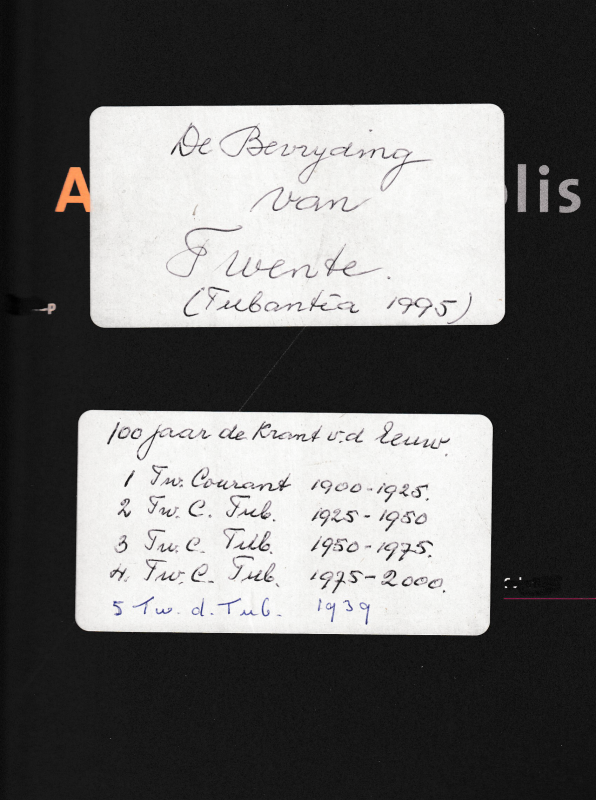 De Bevryding
A
van
lis
Twente.
P
(Tubantia 1995)
100 jaar de Krant v.d Eeuw.
1 Tw. Courant 1900-1925.
2 Tw. C. Tub. 1925-1950
3 Tw. C. Tub. 1950-1975.
4. Tw. C. Tub. 1975-2000.
5 Tw. d. Tub. 1939